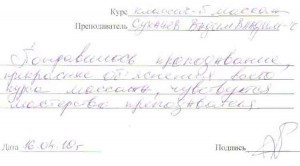 Курс классич. массаж
Преподаватель Сукачев Вадим
Понравилось преподавание,
прекрасно объяснения всего
курса массажа, чувствуется
мастерство преподавателя.
Дата 16.04.10 г Подпись